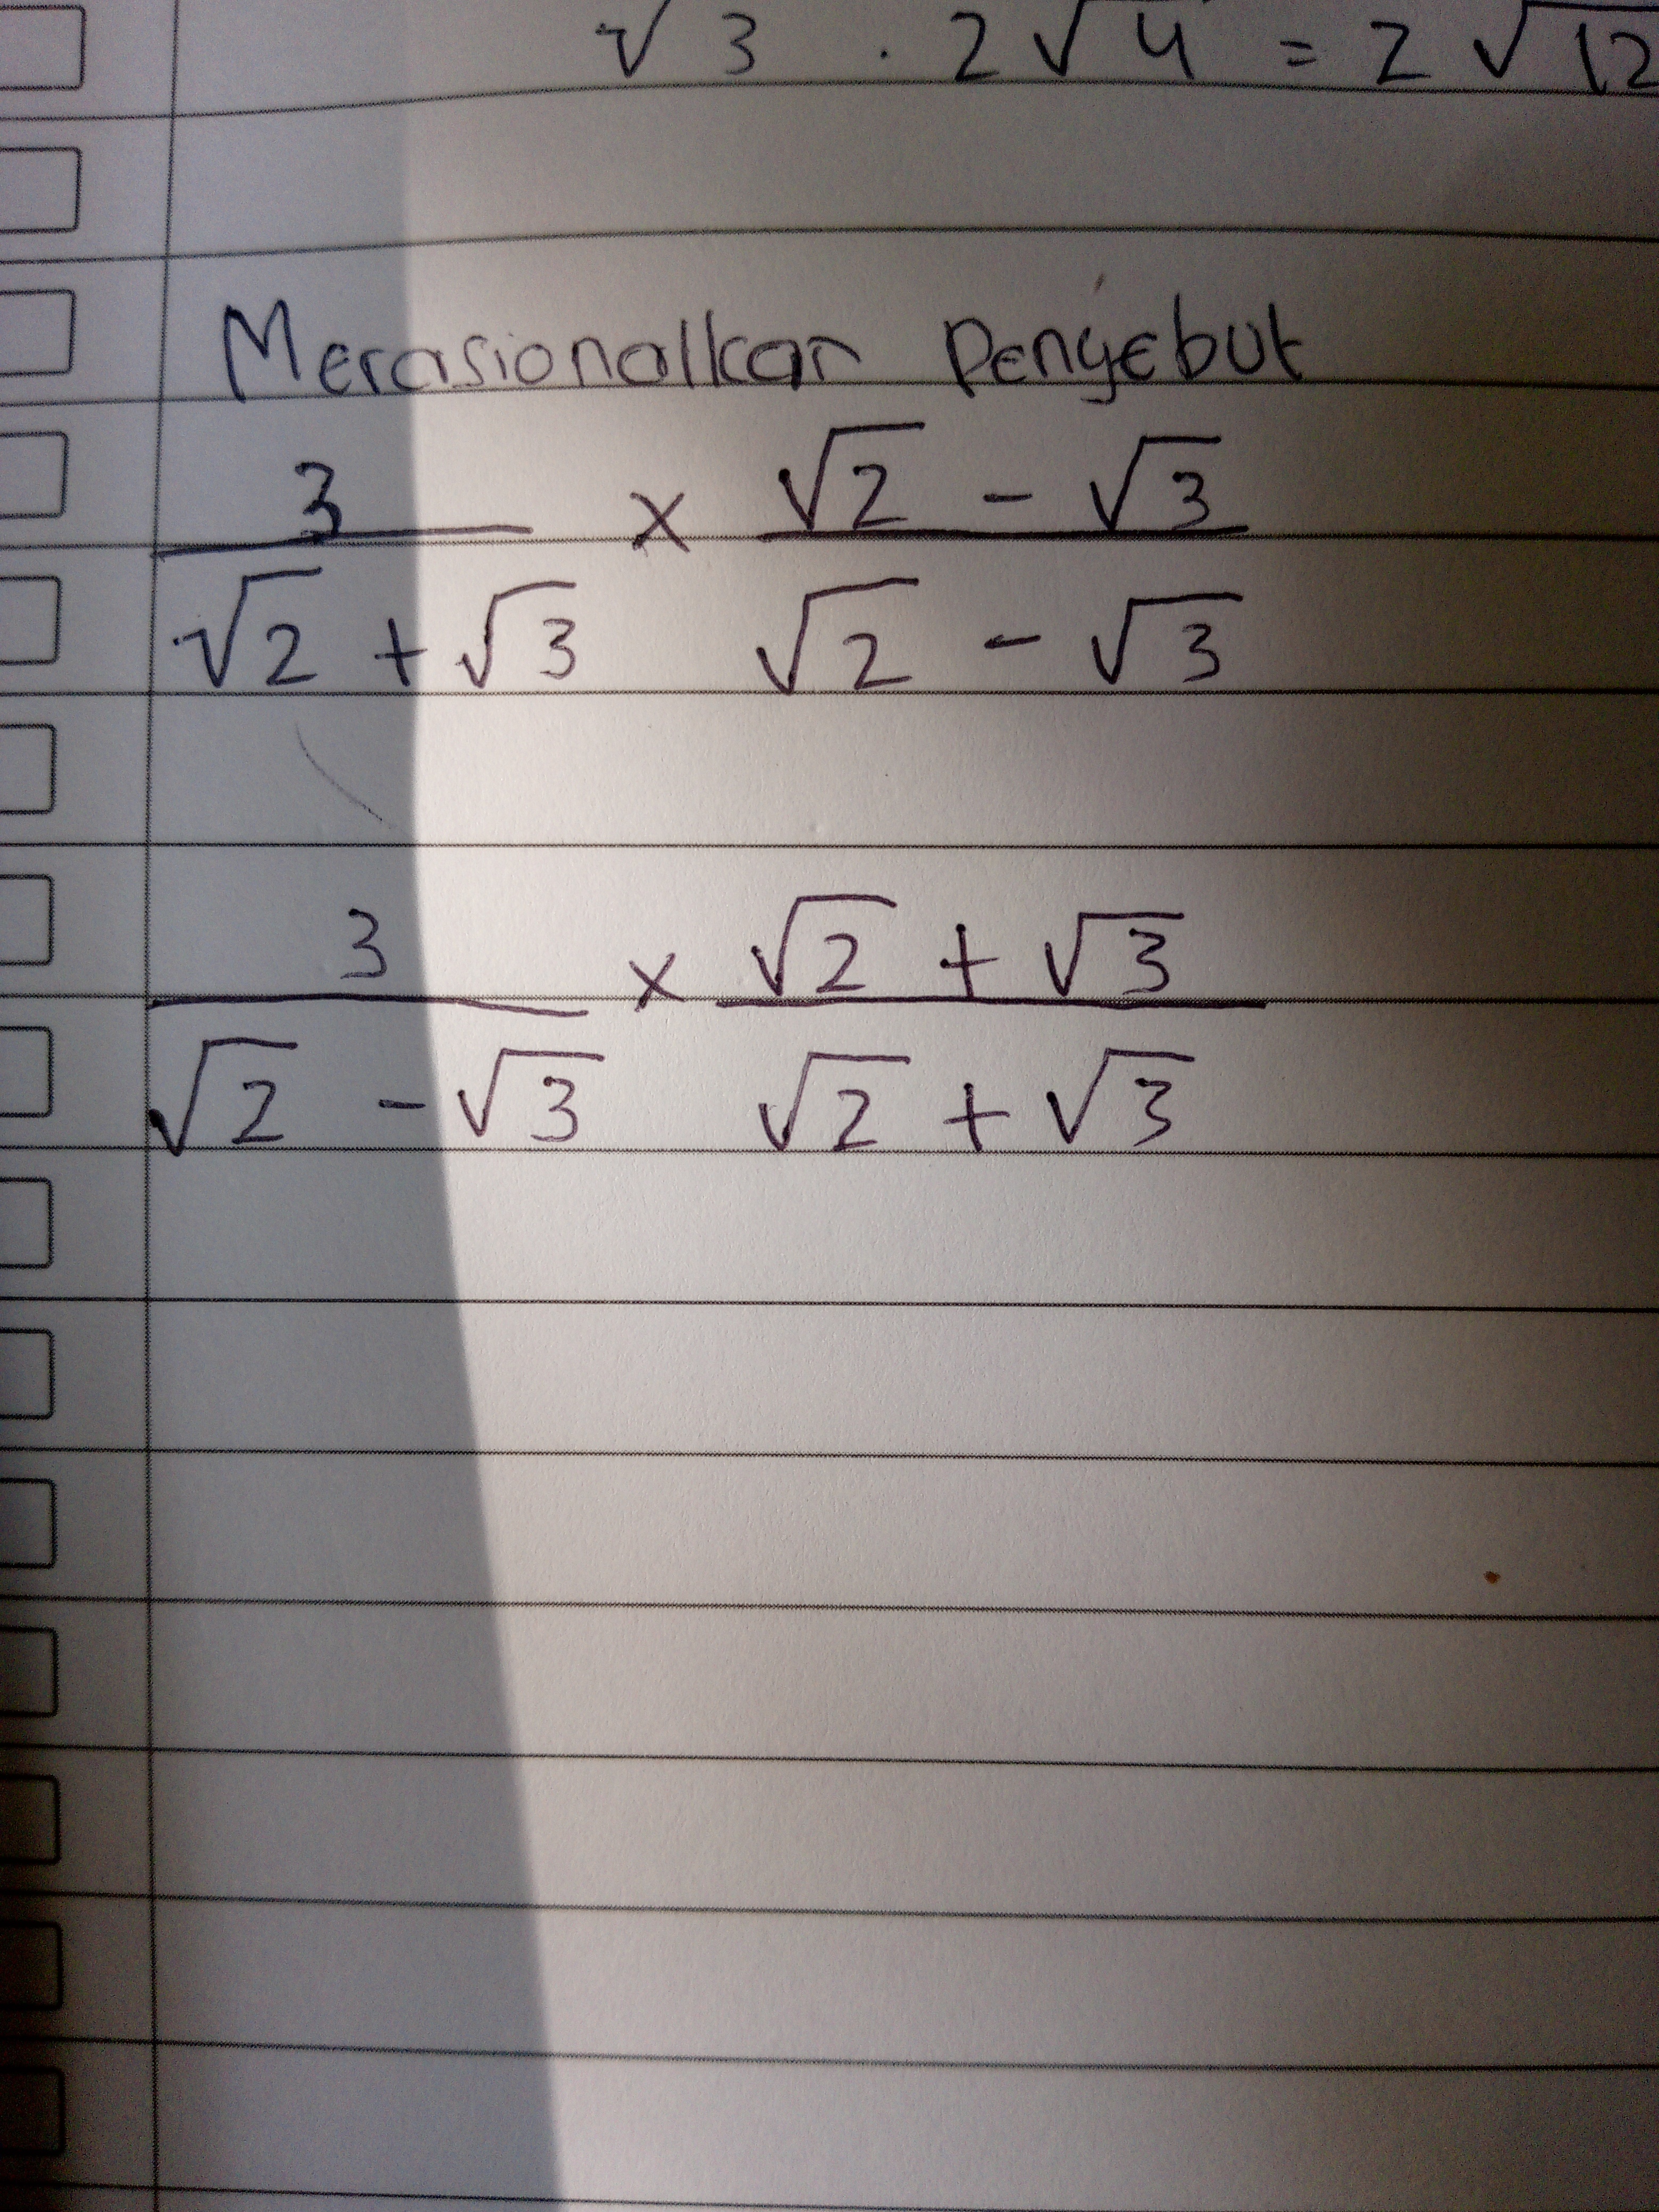 √3 . 2√4 = 2√12
Merasionalkan Penyebut
3 × √2 - √3
√2 + √3 √2 - √3
3 × √2 + √3
√2 - √3 √2 + √3